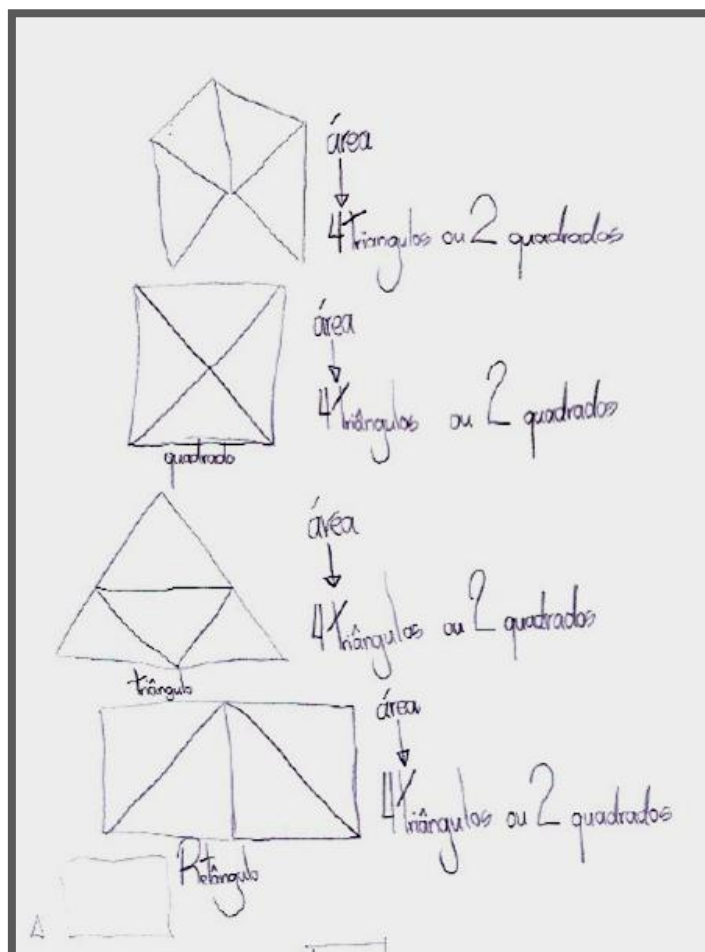 área
4 Triângulos ou 2 quadrados
área
4 triângulos ou 2 quadrados
quadrado
área
4 triângulos ou 2 quadrados
triângulo
área
4 triângulos ou 2 quadrados
Retângulo